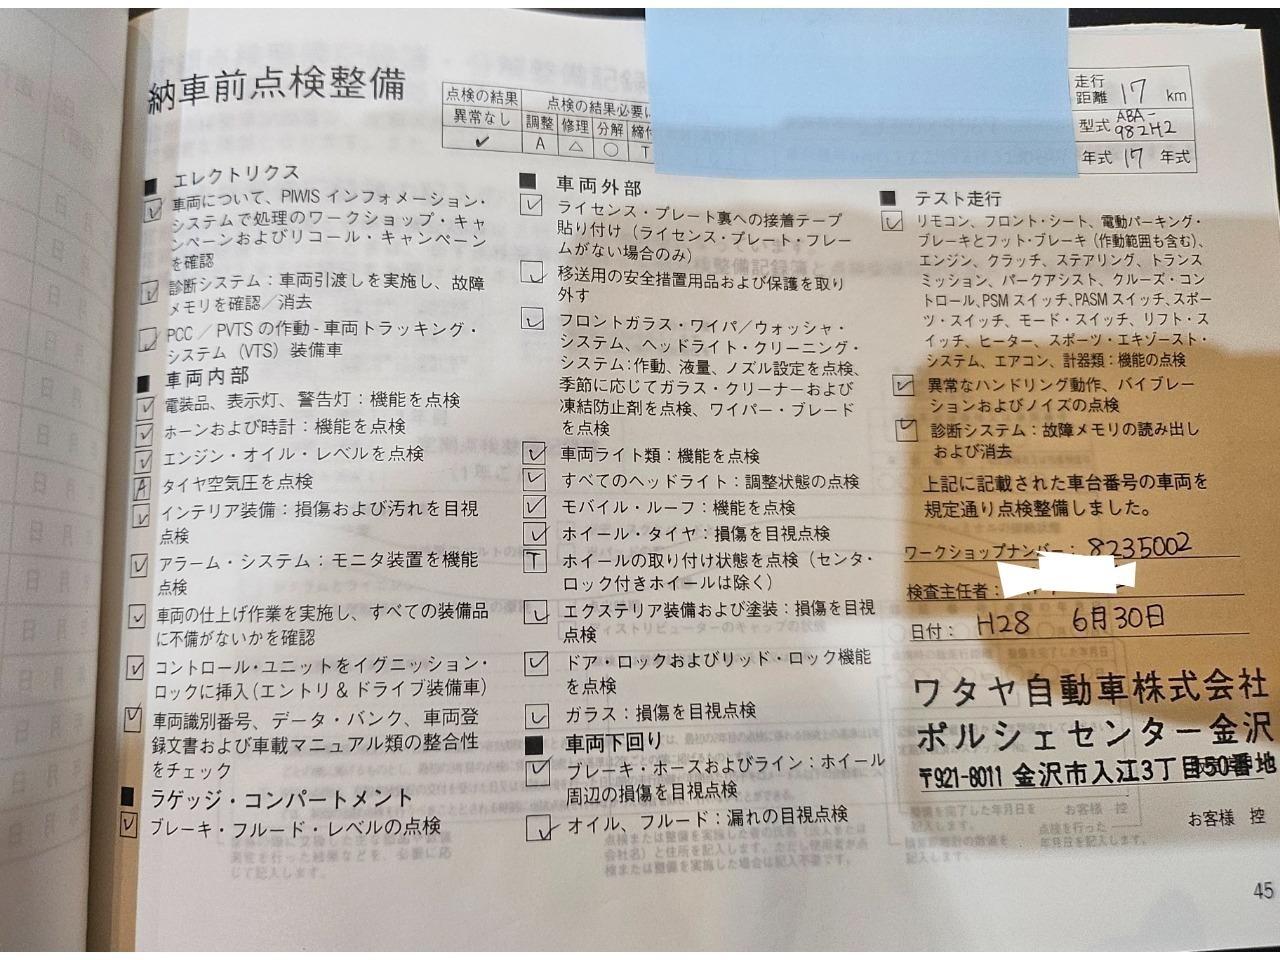 納車前点検整備
点検の結果 点検の結果必要に
異常なし 調整 修理 分解 締付
✔ A △ ○ T
走行距離 17 km
型式 ABA-982H2
年式 17 年式
■ エレクトリクス
車両について、PIWIS インフォメーション・
システムで処理のワークショップ・キャ
ンペーンおよびリコール・キャンペーン
を確認
診断システム：車両引渡しを実施し、故障
メモリを確認／消去
PCC／PVTS の作動 - 車両トラッキング・
システム（VTS）装備車
■ 車両内部
電装品、表示灯、警告灯：機能を点検
ホーンおよび時計：機能を点検
エンジン・オイル・レベルを点検
A タイヤ空気圧を点検
インテリア装備：損傷および汚れを目視
点検
アラーム・システム：モニタ装置を機能
点検
車両の仕上げ作業を実施し、すべての装備品
に不備がないかを確認
コントロール・ユニットをイグニッション・
ロックに挿入（エントリ & ドライブ装備車）
車両識別番号、データ・バンク、車両登
録文書および車載マニュアル類の整合性
をチェック
■ ラゲッジ・コンパートメント
ブレーキ・フルード・レベルの点検
■ 車両外部
ライセンス・プレート裏への接着テープ
貼り付け（ライセンス・プレート・フレー
ムがない場合のみ）
移送用の安全措置用品および保護を取り
外す
フロントガラス・ワイパ／ウォッシャ・
システム、ヘッドライト・クリーニング・
システム：作動、液量、ノズル設定を点検、
季節に応じてガラス・クリーナーおよび
凍結防止剤を点検、ワイパー・ブレード
を点検
車両ライト類：機能を点検
すべてのヘッドライト：調整状態の点検
モバイル・ルーフ：機能を点検
ホイール・タイヤ：損傷を目視点検
T ホイールの取り付け状態を点検（センタ・
ロック付きホイールは除く）
エクステリア装備および塗装：損傷を目視
点検
ドア・ロックおよびリッド・ロック機能
を点検
ガラス：損傷を目視点検
■ 車両下回り
ブレーキ・ホースおよびライン：ホイール
周辺の損傷を目視点検
オイル、フルード：漏れの目視点検
■ テスト走行
リモコン、フロント・シート、電動パーキング・
ブレーキとフット・ブレーキ（作動範囲も含む）、
エンジン、クラッチ、ステアリング、トランス
ミッション、パークアシスト、クルーズ・コン
トロール、PSM スイッチ、PASM スイッチ、スポー
ツ・スイッチ、モード・スイッチ、リフト・ス
イッチ、ヒーター、スポーツ・エキゾースト・
システム、エアコン、計器類：機能の点検
異常なハンドリング動作、バイブレー
ションおよびノイズの点検
診断システム：故障メモリの読み出し
および消去
上記に記載された車台番号の車両を
規定通り点検整備しました。
ワークショップナンバー： 8235002
検査主任者：
日付： H28 6月30日
ワタヤ自動車株式会社
ポルシェセンター金沢
〒921-8011 金沢市入江3丁目50番地
お客様 控
45